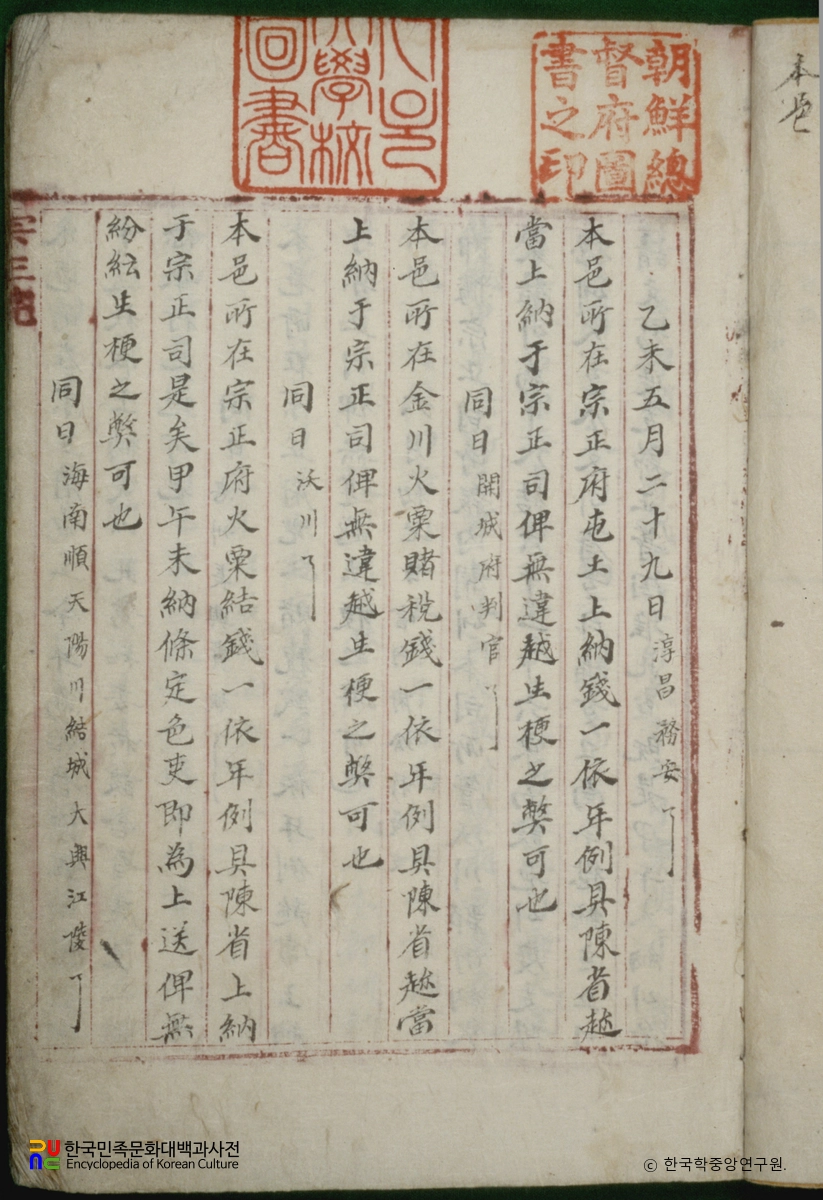 本邑
朝鮮總
督府圖
書之印
大學校
圖書
乙未五月二十九日 淳昌 務安 了
本邑所在宗正府屯土上納錢一依年例具陳省趂
當上納于宗正司俾無違越生梗之弊可也
同日 開城府判官 了
本邑所在金川火粟賭稅錢一依年例具陳省趂當
上納于宗正司俾無違越生梗之弊可也
同日 沃川 了
本邑所在宗正府火粟結錢一依年例具陳省上納
于宗正司是矣甲午未納條定色吏即為上送俾無
紛紜生梗之弊可也
同日 海南 順天 陽川 結城 大興 江陵 了
한국민족문화대백과사전
Encyclopedia of Korean Culture
© 한국학중앙연구원.